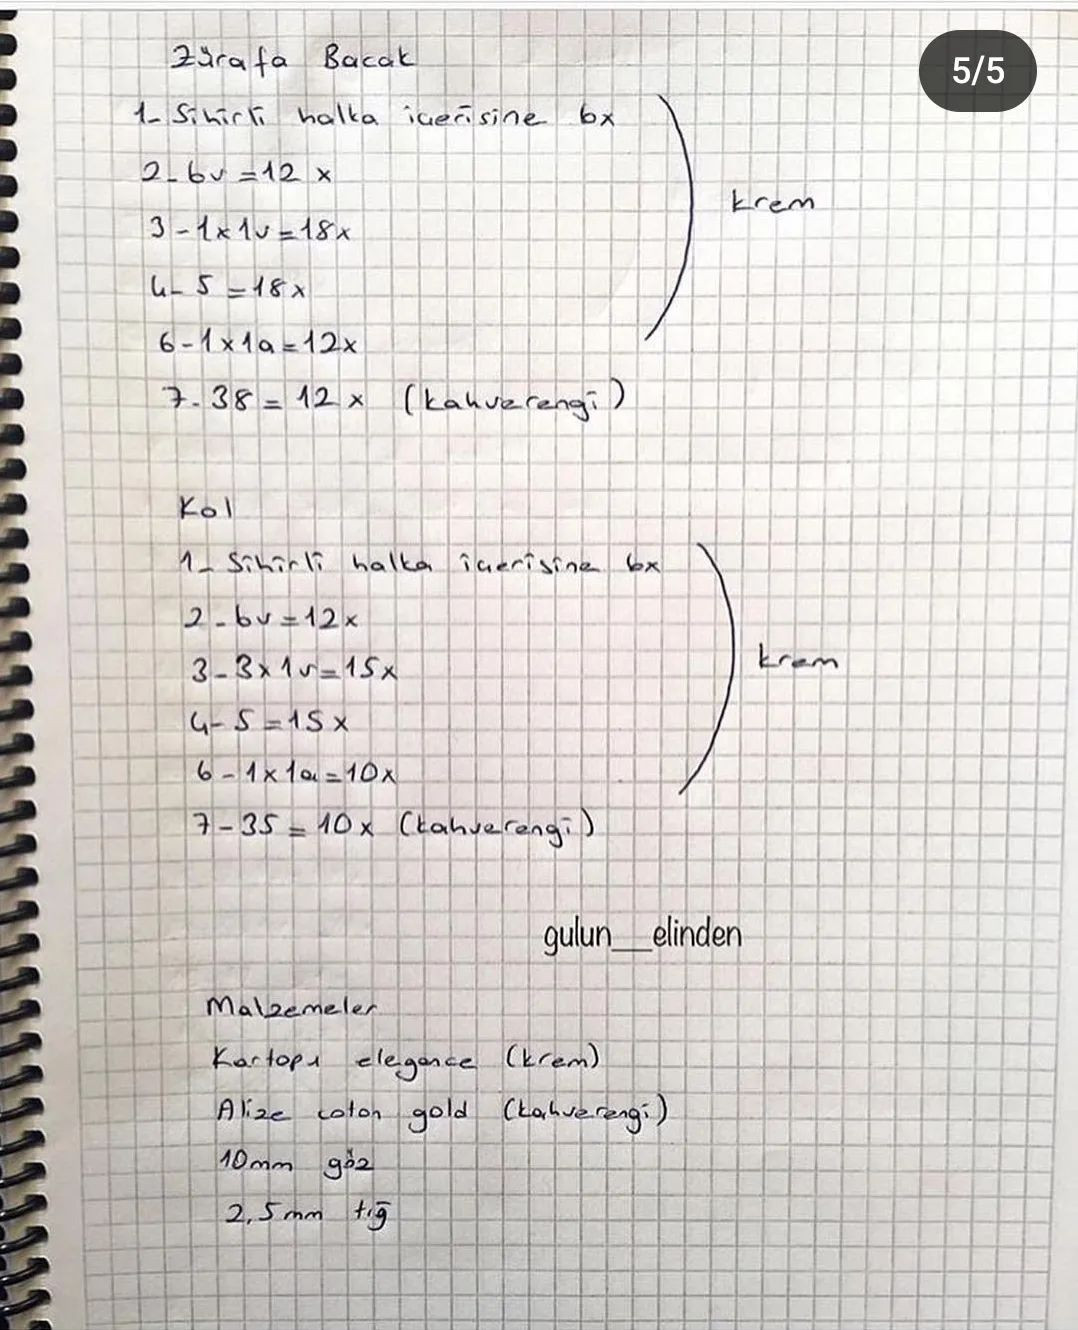 Zürafa Bacak
5/5
1- Sihirli halka içerisine 6x
2- 6v = 12 x
krem
3 - 1x 1v = 18x
4- 5 = 18 x
6 - 1 x 1a = 12x
7 - 38 = 12 x (kahverengi)
Kol
1- Sihirli halka içerisine 6x
2 - 6v = 12x
3 - 3x 1v = 15x
krem
4- 5 = 15 x
6 - 1x 1a = 10x
7 - 35 = 10x (kahverengi)
gulun__elinden
Malzemeler
Kartopı elegance (krem)
Alize coton gold (kahverengi)
10mm göz
2,5mm tığ